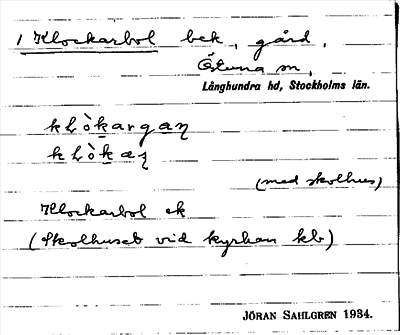 1 Klockarbol bek., gård,
Östuna sn,
Långhundra hd, Stockholms län.
klò̱kargaɳ
klò̱kaɳ
(med skolhus)
Klockarbol ek
(Skolhuset vid kyrkan kb)
JÖRAN SAHLGREN 1934.